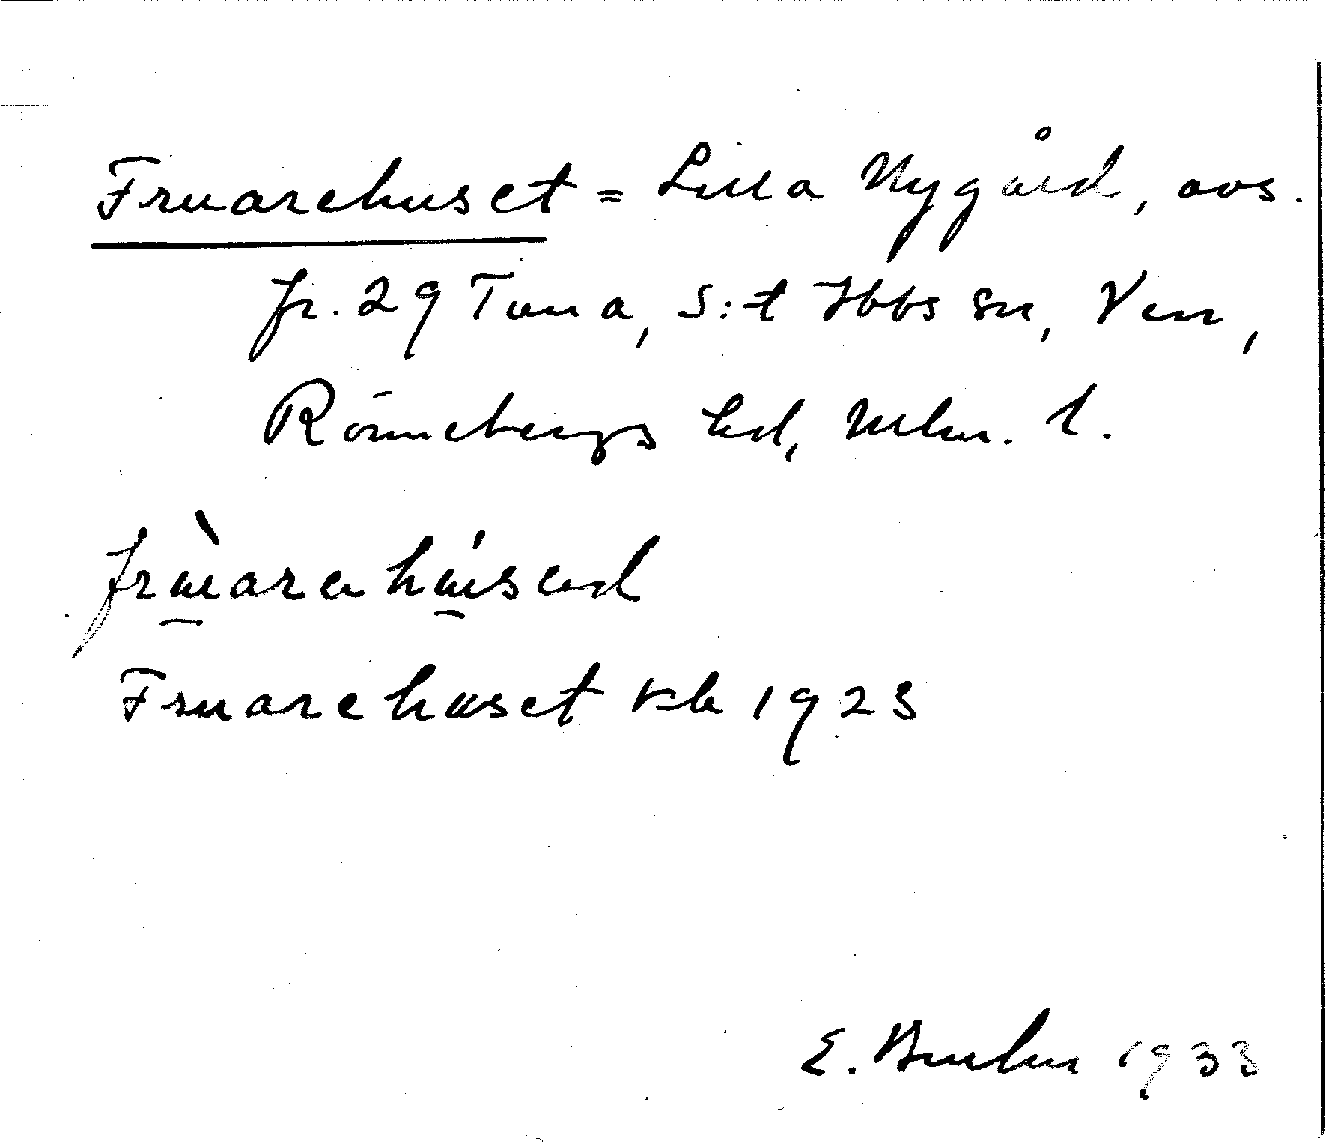 Fruarehuset = Lilla Nygård, avs.
fr. 29 Tuna, S:t Ibbs sn, Ven,
Rönnebergs hd, Mlm. l.
frùarahúsad
Fruarehuset kb 1923
E. 1933